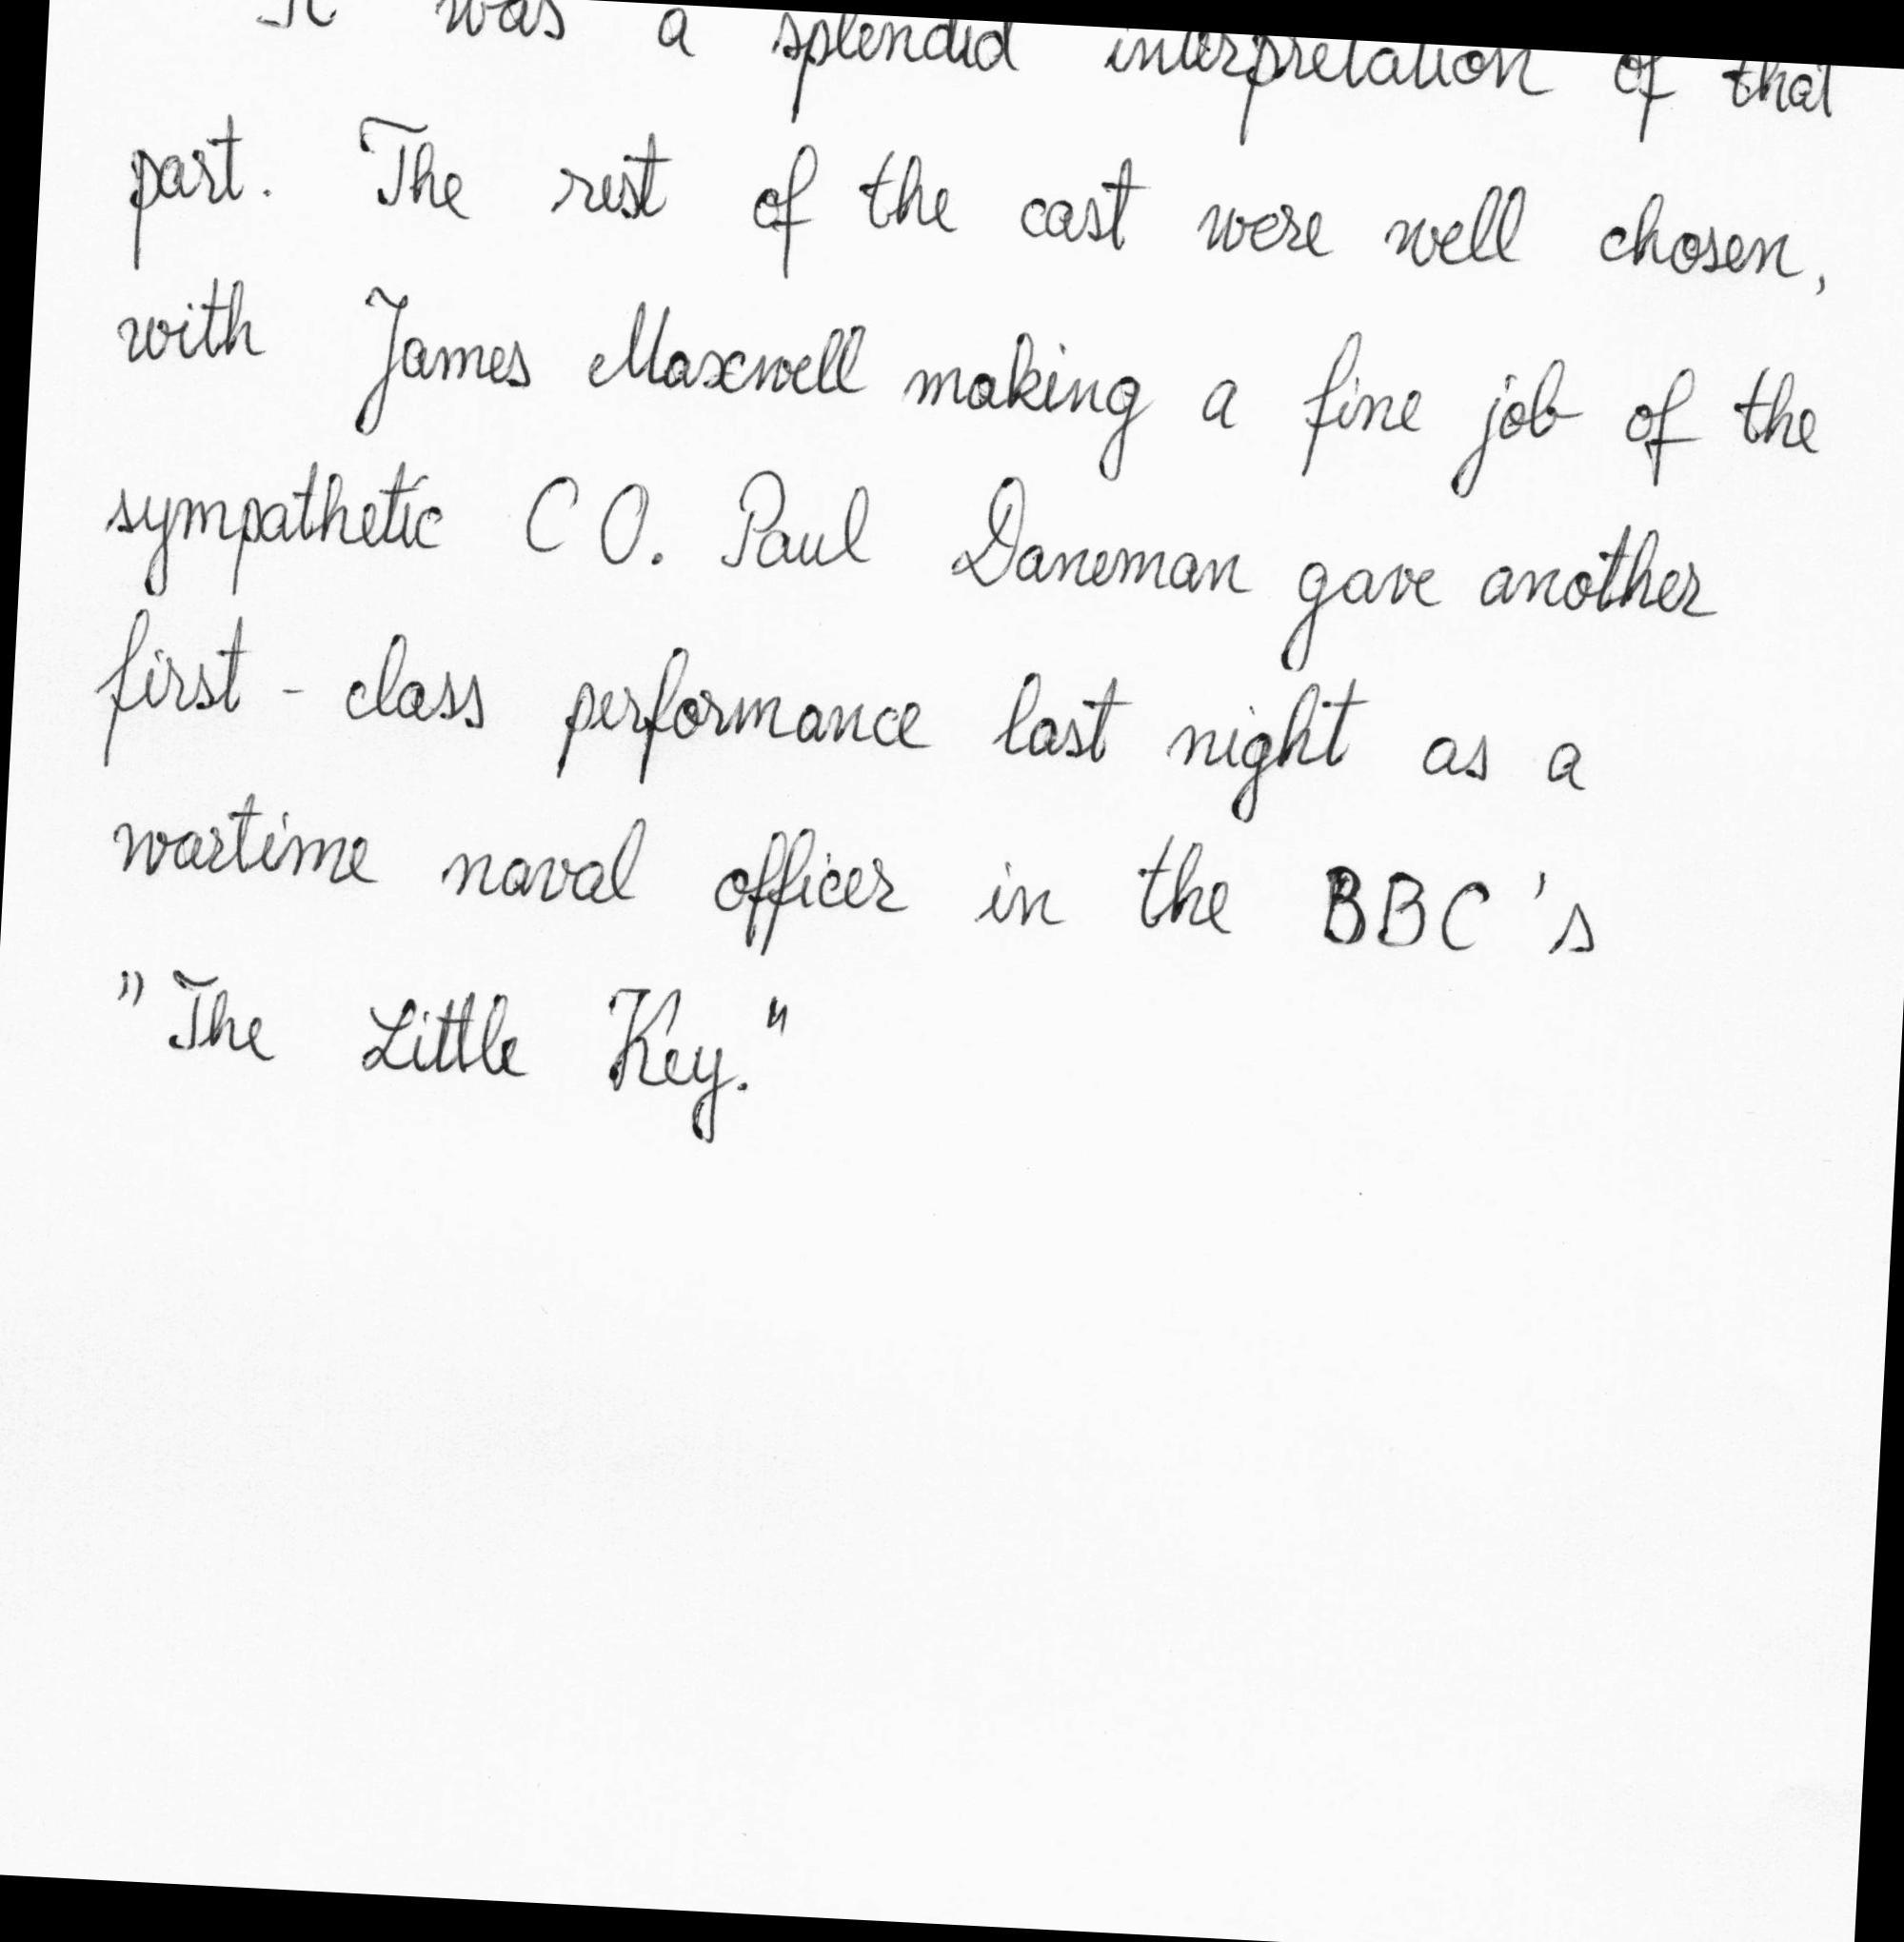 It was a splendid interpretation of that
part. The rest of the cast were well chosen,
with James Maxwell making a fine job of the
sympathetic CO. Paul Daneman gave another
first-class performance last night as a
wartime naval officer in the BBC's
"The Little Key."